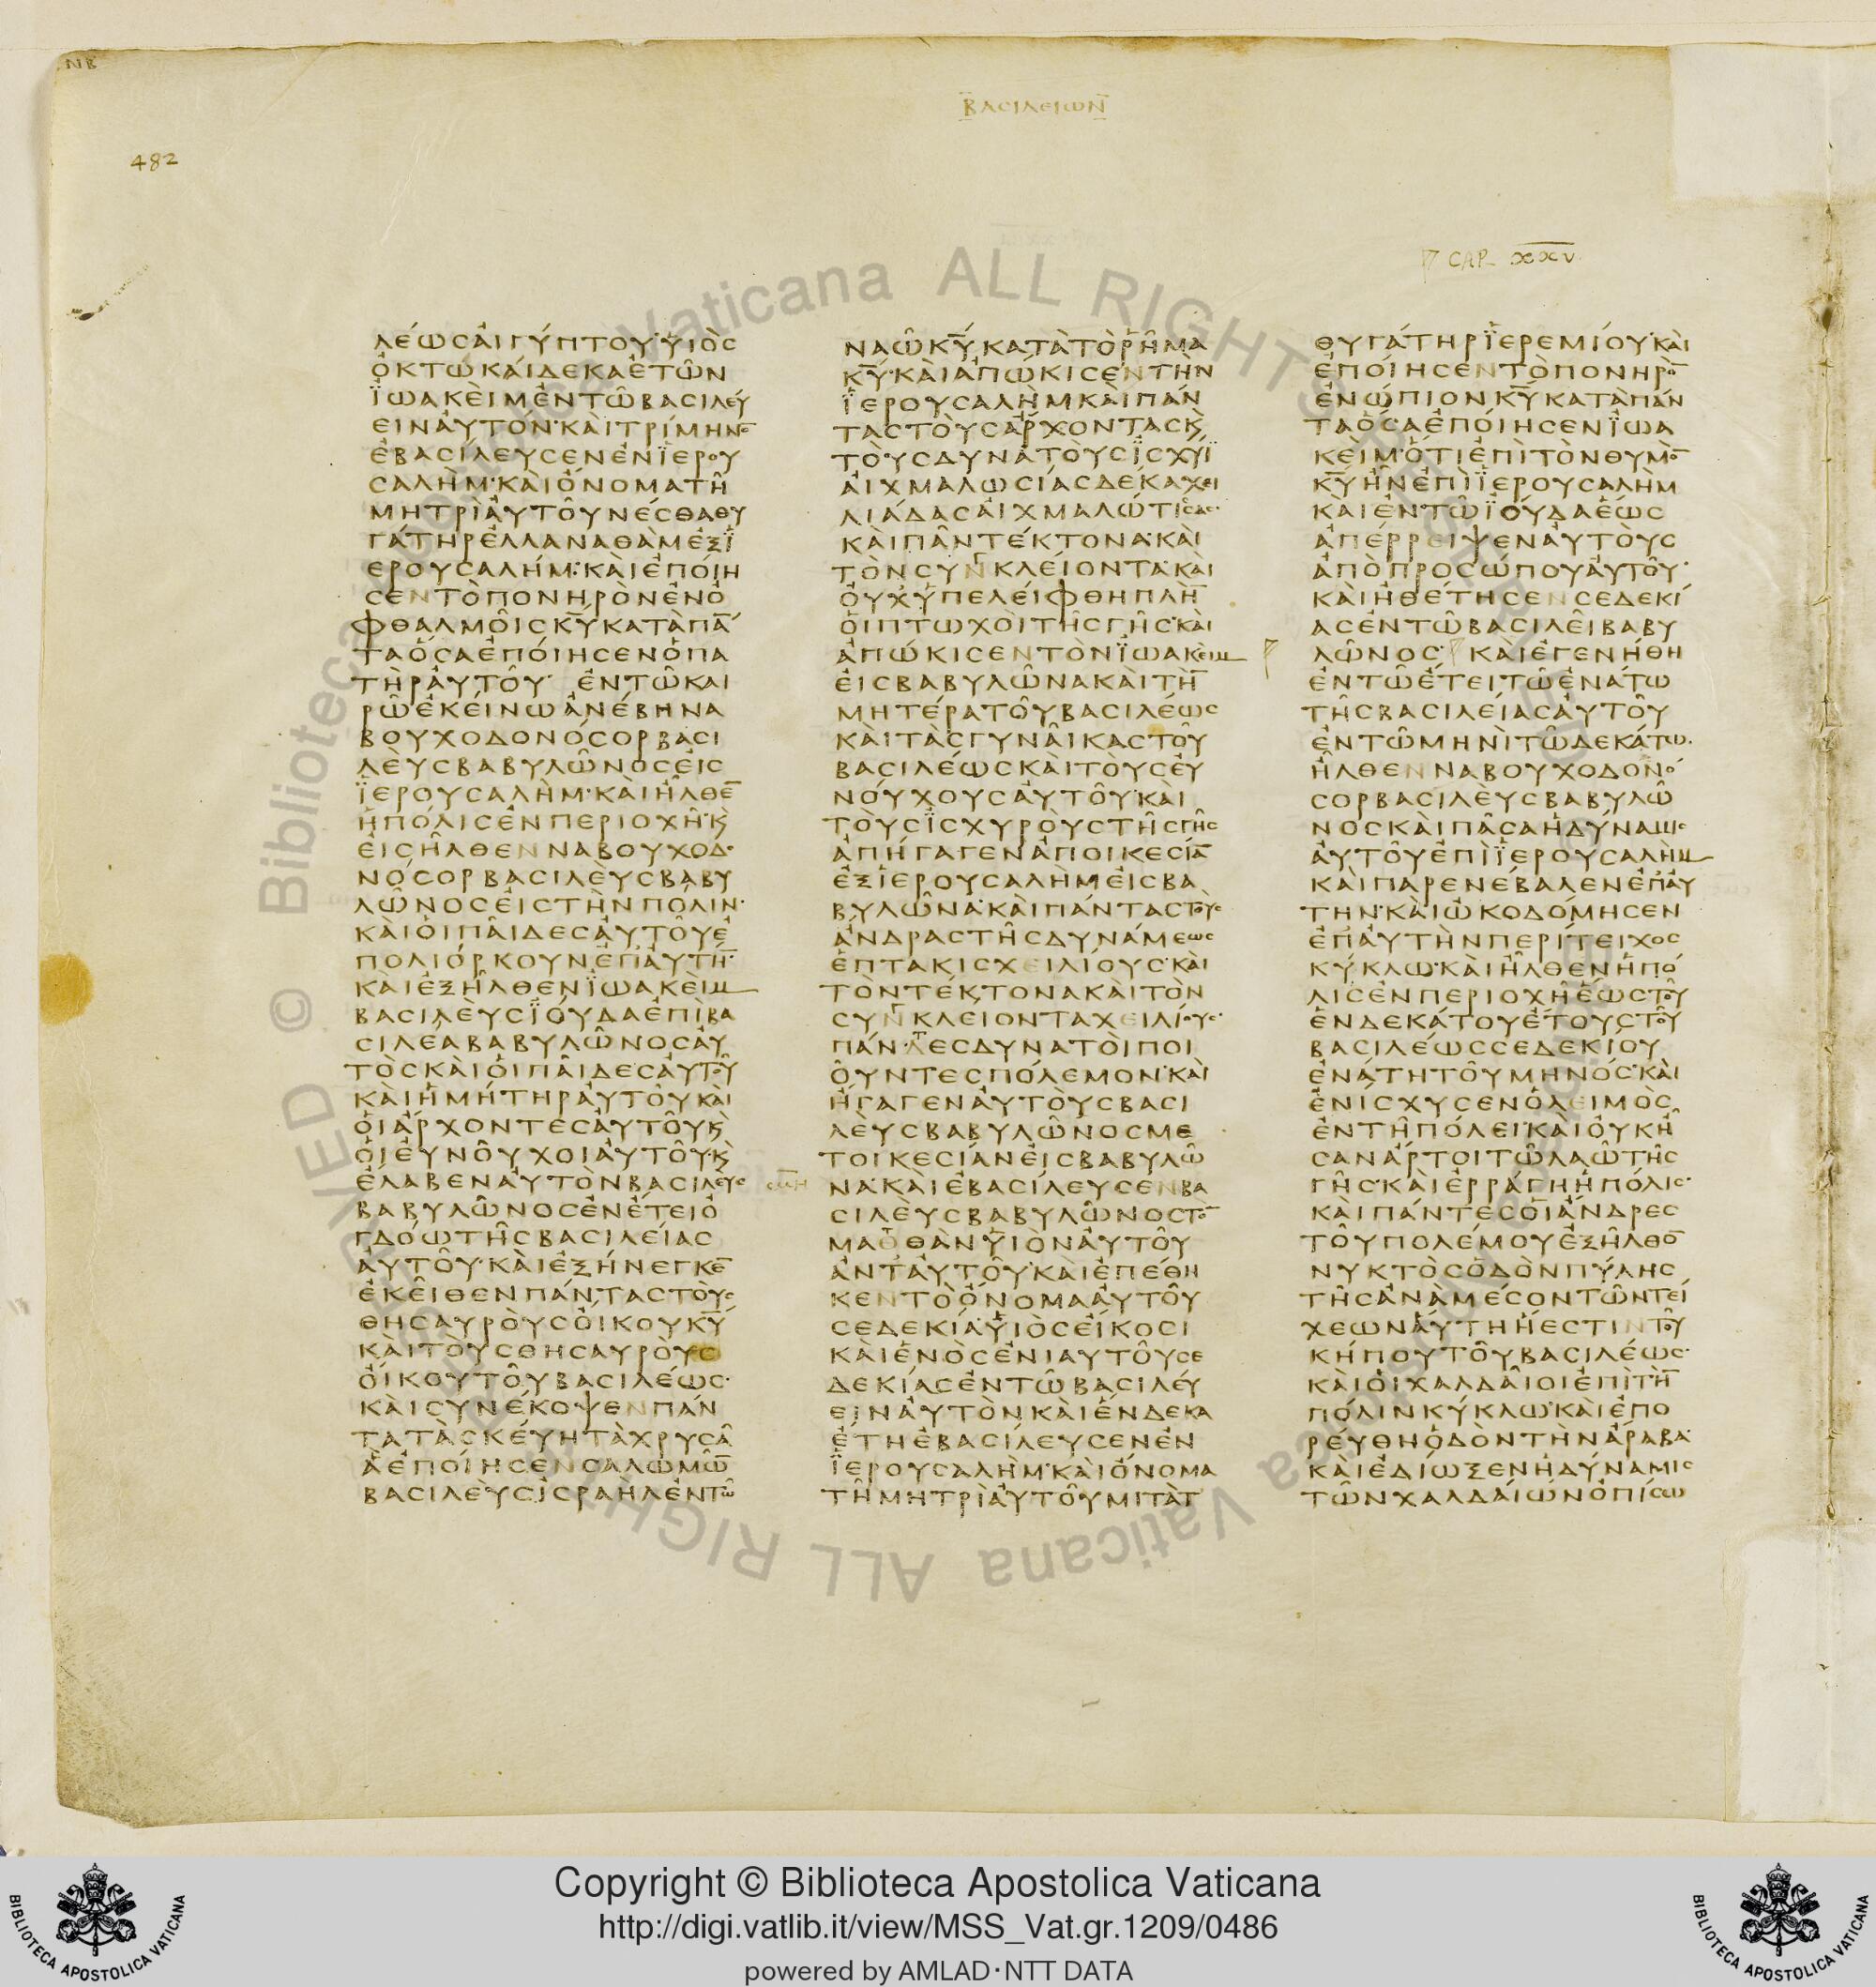 NB
ΒΑϹΙΛΕΙΩΝ
482
CAP XXXV
ΛΕΩϹΑΙΓΥΠΤΟΥ·ΥΙΟϹ
ΟΚΤΩΚΑΙΔΕΚΑΕΤΩΝ
ΪΩΑΚΕΙΜΕΝΤΩΒΑϹΙΛΕΥ
ΕΙΝΑΥΤΟΝ·ΚΑΙΤΡΙΜΗΝΟ̅
ΕΒΑϹΙΛΕΥϹΕΝΕΝΪΕΡΟΥ
ϹΑΛΗΜ·ΚΑΙΟΝΟΜΑΤΗ
ΜΗΤΡΙΑΥΤΟΥΝΕϹΘΑΘΥ
ΓΑΤΗΡΕΛΛΑΝΑΘΑΜΕΞΪ
ΕΡΟΥϹΑΛΗΜ:ΚΑΙΕΠΟΙΗ
ϹΕΝΤΟΠΟΝΗΡΟΝΕΝΟ
ΦΘΑΛΜΟΙϹΚ̅Υ̅ΚΑΤΑΠΑ̅
ΤΑΟϹΑΕΠΟΙΗϹΕΝΟΠΑ
ΤΗΡΑΥΤΟΥ· ΕΝΤΩΚΑΙ
ΡΩΕΚΕΙΝΩΑΝΕΒΗΝΑ
ΒΟΥΧΟΔΟΝΟϹΟΡΒΑϹΙ
ΛΕΥϹΒΑΒΥΛΩΝΟϹΕΙϹ
ΪΕΡΟΥϹΑΛΗΜ·ΚΑΙΗΛΘΕ̅
ΗΠΟΛΙϹΕΝΠΕΡΙΟΧΗ·Ϗ
ΕΙϹΗΛΘΕΝΝΑΒΟΥΧΟΔΟ
ΝΟϹΟΡΒΑϹΙΛΕΥϹΒΑΒΥ
ΛΩΝΟϹΕΙϹΤΗΝΠΟΛΙΝ·
ΚΑΙΟΙΠΑΙΔΕϹΑΥΤΟΥΕ
ΠΟΛΙΟΡΚΟΥΝΕΠΑΥΤΗ̅·
ΚΑΙΕΞΗΛΘΕΝΪΩΑΚΕΙΜ
ΒΑϹΙΛΕΥϹΪΟΥΔΑΕΠΙΒΑ
ϹΙΛΕΑΒΑΒΥΛΩΝΟϹΑΥ
ΤΟϹΚΑΙΟΙΠΑΙΔΕϹΑΥΤΟΥ
ΚΑΙΗΜΗΤΗΡΑΥΤΟΥΚΑΙ
ΟΙΑΡΧΟΝΤΕϹΑΥΤΟΥϏ
ΟΙΕΥΝΟΥΧΟΙΑΥΤΟΥ·Ϗ
ΕΛΑΒΕΝΑΥΤΟΝΒΑϹΙΛΕΥϹ
ΒΑΒΥΛΩΝΟϹΕΝΕΤΕΙΟ
ΓΔΟΩΤΗϹΒΑϹΙΛΕΙΑϹ
ΑΥΤΟΥ·ΚΑΙΕΞΗΝΕΓΚΕ̅
ΕΚΕΙΘΕΝΠΑΝΤΑϹΤΟΥϹ
ΘΗϹΑΥΡΟΥϹΟΙΚΟΥΚ̅Υ̅
ΚΑΙΤΟΥϹΘΗϹΑΥΡΟΥϹ
ΟΙΚΟΥΤΟΥΒΑϹΙΛΕΩϹ·
ΚΑΙϹΥΝΕΚΟΨΕΝΠΑΝ
ΤΑΤΑϹΚΕΥΗΤΑΧΡΥϹΑ
ΑΕΠΟΙΗϹΕΝϹΑΛΩΜΩ̅
ΒΑϹΙΛΕΥϹΙϹΡΑΗΛΕΝΤΩ
ΝΑΩΚ̅Υ̅ΚΑΤΑΤΟΡΗΜΑ
Κ̅Υ̅·ΚΑΙΑΠΩΚΙϹΕΝΤΗΝ
ΪΕΡΟΥϹΑΛΗΜΚΑΙΠΑΝ
ΤΑϹΤΟΥϹΑΡΧΟΝΤΑϹϏ
ΤΟΥϹΔΥΝΑΤΟΥϹΪϹΧΥΪ
ΑΙΧΜΑΛΩϹΙΑϹΔΕΚΑΧΕΙ
ΛΙΑΔΑϹΑΙΧΜΑΛΩΤΙϹΑϹ·
ΚΑΙΠΑΝΤΕΚΤΟΝΑ·ΚΑΙ
ΤΟΝϹΥΝΚΛΕΙΟΝΤΑ·ΚΑΙ
ΟΥΧΥΠΕΛΕΙΦΘΗΠΛΗ̅
ΟΙΠΤΩΧΟΙΤΗϹΓΗϹ·ΚΑΙ
ΑΠΩΚΙϹΕΝΤΟΝΪΩΑΚΕΙΜ
ΕΙϹΒΑΒΥΛΩΝΑΚΑΙΤΗ̅
ΜΗΤΕΡΑΤΟΥΒΑϹΙΛΕΩϹ
ΚΑΙΤΑϹΓΥΝΑΙΚΑϹΤΟΥ
ΒΑϹΙΛΕΩϹΚΑΙΤΟΥϹΕΥ
ΝΟΥΧΟΥϹΑΥΤΟΥ·ΚΑΙ
ΤΟΥϹΪϹΧΥΡΟΥϹΤΗϹΓΗϹ
ΑΠΗΓΑΓΕΝΑΠΟΙΚΕϹΙΑ̅
ΕΞΪΕΡΟΥϹΑΛΗΜΕΙϹΒΑ
ΒΥΛΩΝΑ·ΚΑΙΠΑΝΤΑϹΤΟΥϹ
ΑΝΔΡΑϹΤΗϹΔΥΝΑΜΕΩϹ
ΕΠΤΑΚΙϹΧΕΙΛΙΟΥϹ·ΚΑΙ
ΤΟΝΤΕΚΤΟΝΑΚΑΙΤΟΝ
ϹΥΝΚΛΕΙΟΝΤΑΧΕΙΛΙΟΥϹ·
ΠΑΝΤΕϹΔΥΝΑΤΟΙΠΟΙ
ΟΥΝΤΕϹΠΟΛΕΜΟΝ·ΚΑΙ
ΗΓΑΓΕΝΑΥΤΟΥϹΒΑϹΙ
ΛΕΥϹΒΑΒΥΛΩΝΟϹΜΕ
ΤΟΙΚΕϹΙΑΝΕΙϹΒΑΒΥΛΩ
ΝΑ·ΚΑΙΕΒΑϹΙΛΕΥϹΕΝΒΑ
ϹΙΛΕΥϹΒΑΒΥΛΩΝΟϹΤΟ̅
ΜΑΘΘΑΝΥΙΟΝΑΥΤΟΥ
ΑΝΤΑΥΤΟΥ·ΚΑΙΕΠΕΘΗ
ΚΕΝΤΟΟΝΟΜΑΑΥΤΟΥ
ϹΕΔΕΚΙΑ·ΥΙΟϹΕΙΚΟϹΙ
ΚΑΙΕΝΟϹΕΝΙΑΥΤΟΥϹΕ
ΔΕΚΙΑϹΕΝΤΩΒΑϹΙΛΕΥ
ΕΙΝΑΥΤΟΝΚΑΙΕΝΔΕΚΑ
ΕΤΗΕΒΑϹΙΛΕΥϹΕΝΕΝ
ΪΕΡΟΥϹΑΛΗΜ·ΚΑΙΟΝΟΜΑ
ΤΗΜΗΤΡΙΑΥΤΟΥΜΙΤΑΤ
ΘΥΓΑΤΗΡΪΕΡΕΜΙΟΥ·ΚΑΙ
ΕΠΟΙΗϹΕΝΤΟΠΟΝΗΡΟ̅
ΕΝΩΠΙΟΝΚ̅Υ̅ΚΑΤΑΠΑΝ
ΤΑΟϹΑΕΠΟΙΗϹΕΝΪΩΑ
ΚΕΙΜ·ΟΤΙΕΠΙΤΟΝΘΥΜΟ̅
Κ̅Υ̅ΗΝΕΠΙΪΕΡΟΥϹΑΛΗΜ
ΚΑΙΕΝΤΩΪΟΥΔΑΕΩϹ
ΑΠΕΡΡΕΙΨΕΝΑΥΤΟΥϹ
ΑΠΟΠΡΟϹΩΠΟΥΑΥΤΟΥ·
ΚΑΙΗΘΕΤΗϹΕΝϹΕΔΕΚΙ
ΑϹΕΝΤΩΒΑϹΙΛΕΙΒΑΒΥ
ΛΩΝΟϹ· ΚΑΙΕΓΕΝΗΘΗ
ΕΝΤΩΕΤΕΙΤΩΕΝΑΤΩ
ΤΗϹΒΑϹΙΛΕΙΑϹΑΥΤΟΥ
ΕΝΤΩΜΗΝΙΤΩΔΕΚΑΤΩ·
ΗΛΘΕΝΝΑΒΟΥΧΟΔΟΝΟ
ϹΟΡΒΑϹΙΛΕΥϹΒΑΒΥΛΩ
ΝΟϹΚΑΙΠΑϹΑΗΔΥΝΑΜΙϹ
ΑΥΤΟΥΕΠΙΪΕΡΟΥϹΑΛΗΜ
ΚΑΙΠΑΡΕΝΕΒΑΛΕΝΕΠΑΥ
ΤΗΝ·ΚΑΙΩΚΟΔΟΜΗϹΕΝ
ΕΠΑΥΤΗΝΠΕΡΙΤΕΙΧΟϹ
ΚΥΚΛΩ·ΚΑΙΗΛΘΕΝΗΠΟ
ΛΙϹΕΝΠΕΡΙΟΧΗΕΩϹΤΟΥ
ΕΝΔΕΚΑΤΟΥΕΤΟΥϹΤΟΥ
ΒΑϹΙΛΕΩϹϹΕΔΕΚΙΟΥ
ΕΝΑΤΗΤΟΥΜΗΝΟϹ·ΚΑΙ
ΕΝΙϹΧΥϹΕΝΟΛΕΙΜΟϹ
ΕΝΤΗΠΟΛΕΙ·ΚΑΙΟΥΚΗ
ϹΑΝΑΡΤΟΙΤΩΛΑΩΤΗϹ
ΓΗϹ·ΚΑΙΕΡΡΑΓΗΗΠΟΛΙϹ·
ΚΑΙΠΑΝΤΕϹΟΙΑΝΔΡΕϹ
ΤΟΥΠΟΛΕΜΟΥΕΞΗΛΘΟ̅
ΝΥΚΤΟϹΟΔΟΝΠΥΛΗϹ
ΤΗϹΑΝΑΜΕϹΟΝΤΩΝΤΕΙ
ΧΕΩΝΑΥΤΗΗΕϹΤΙΝΤΟΥ
ΚΗΠΟΥΤΟΥΒΑϹΙΛΕΩϹ·
ΚΑΙΟΙΧΑΛΔΑΙΟΙΕΠΙΤΗ̅
ΠΟΛΙΝΚΥΚΛΩ·ΚΑΙΕΠΟ
ΡΕΥΘΗΟΔΟΝΤΗΝΑΡΑΒΑ·
ΚΑΙΕΔΙΩΞΕΝΗΔΥΝΑΜΙϹ
ΤΩΝΧΑΛΔΑΙΩΝΟΠΙϹΩ
Biblioteca Apostolica Vaticana ALL RIGHTS RESERVED ©
Biblioteca Apostolica Vaticana ALL RIGHTS RESERVED ©
Copyright © Biblioteca Apostolica Vaticana
http://digi.vatlib.it/view/MSS_Vat.gr.1209/0486
powered by AMLAD·NTT DATA
BIBLIOTECA APOSTOLICA VATICANA
BIBLIOTECA APOSTOLICA VATICANA